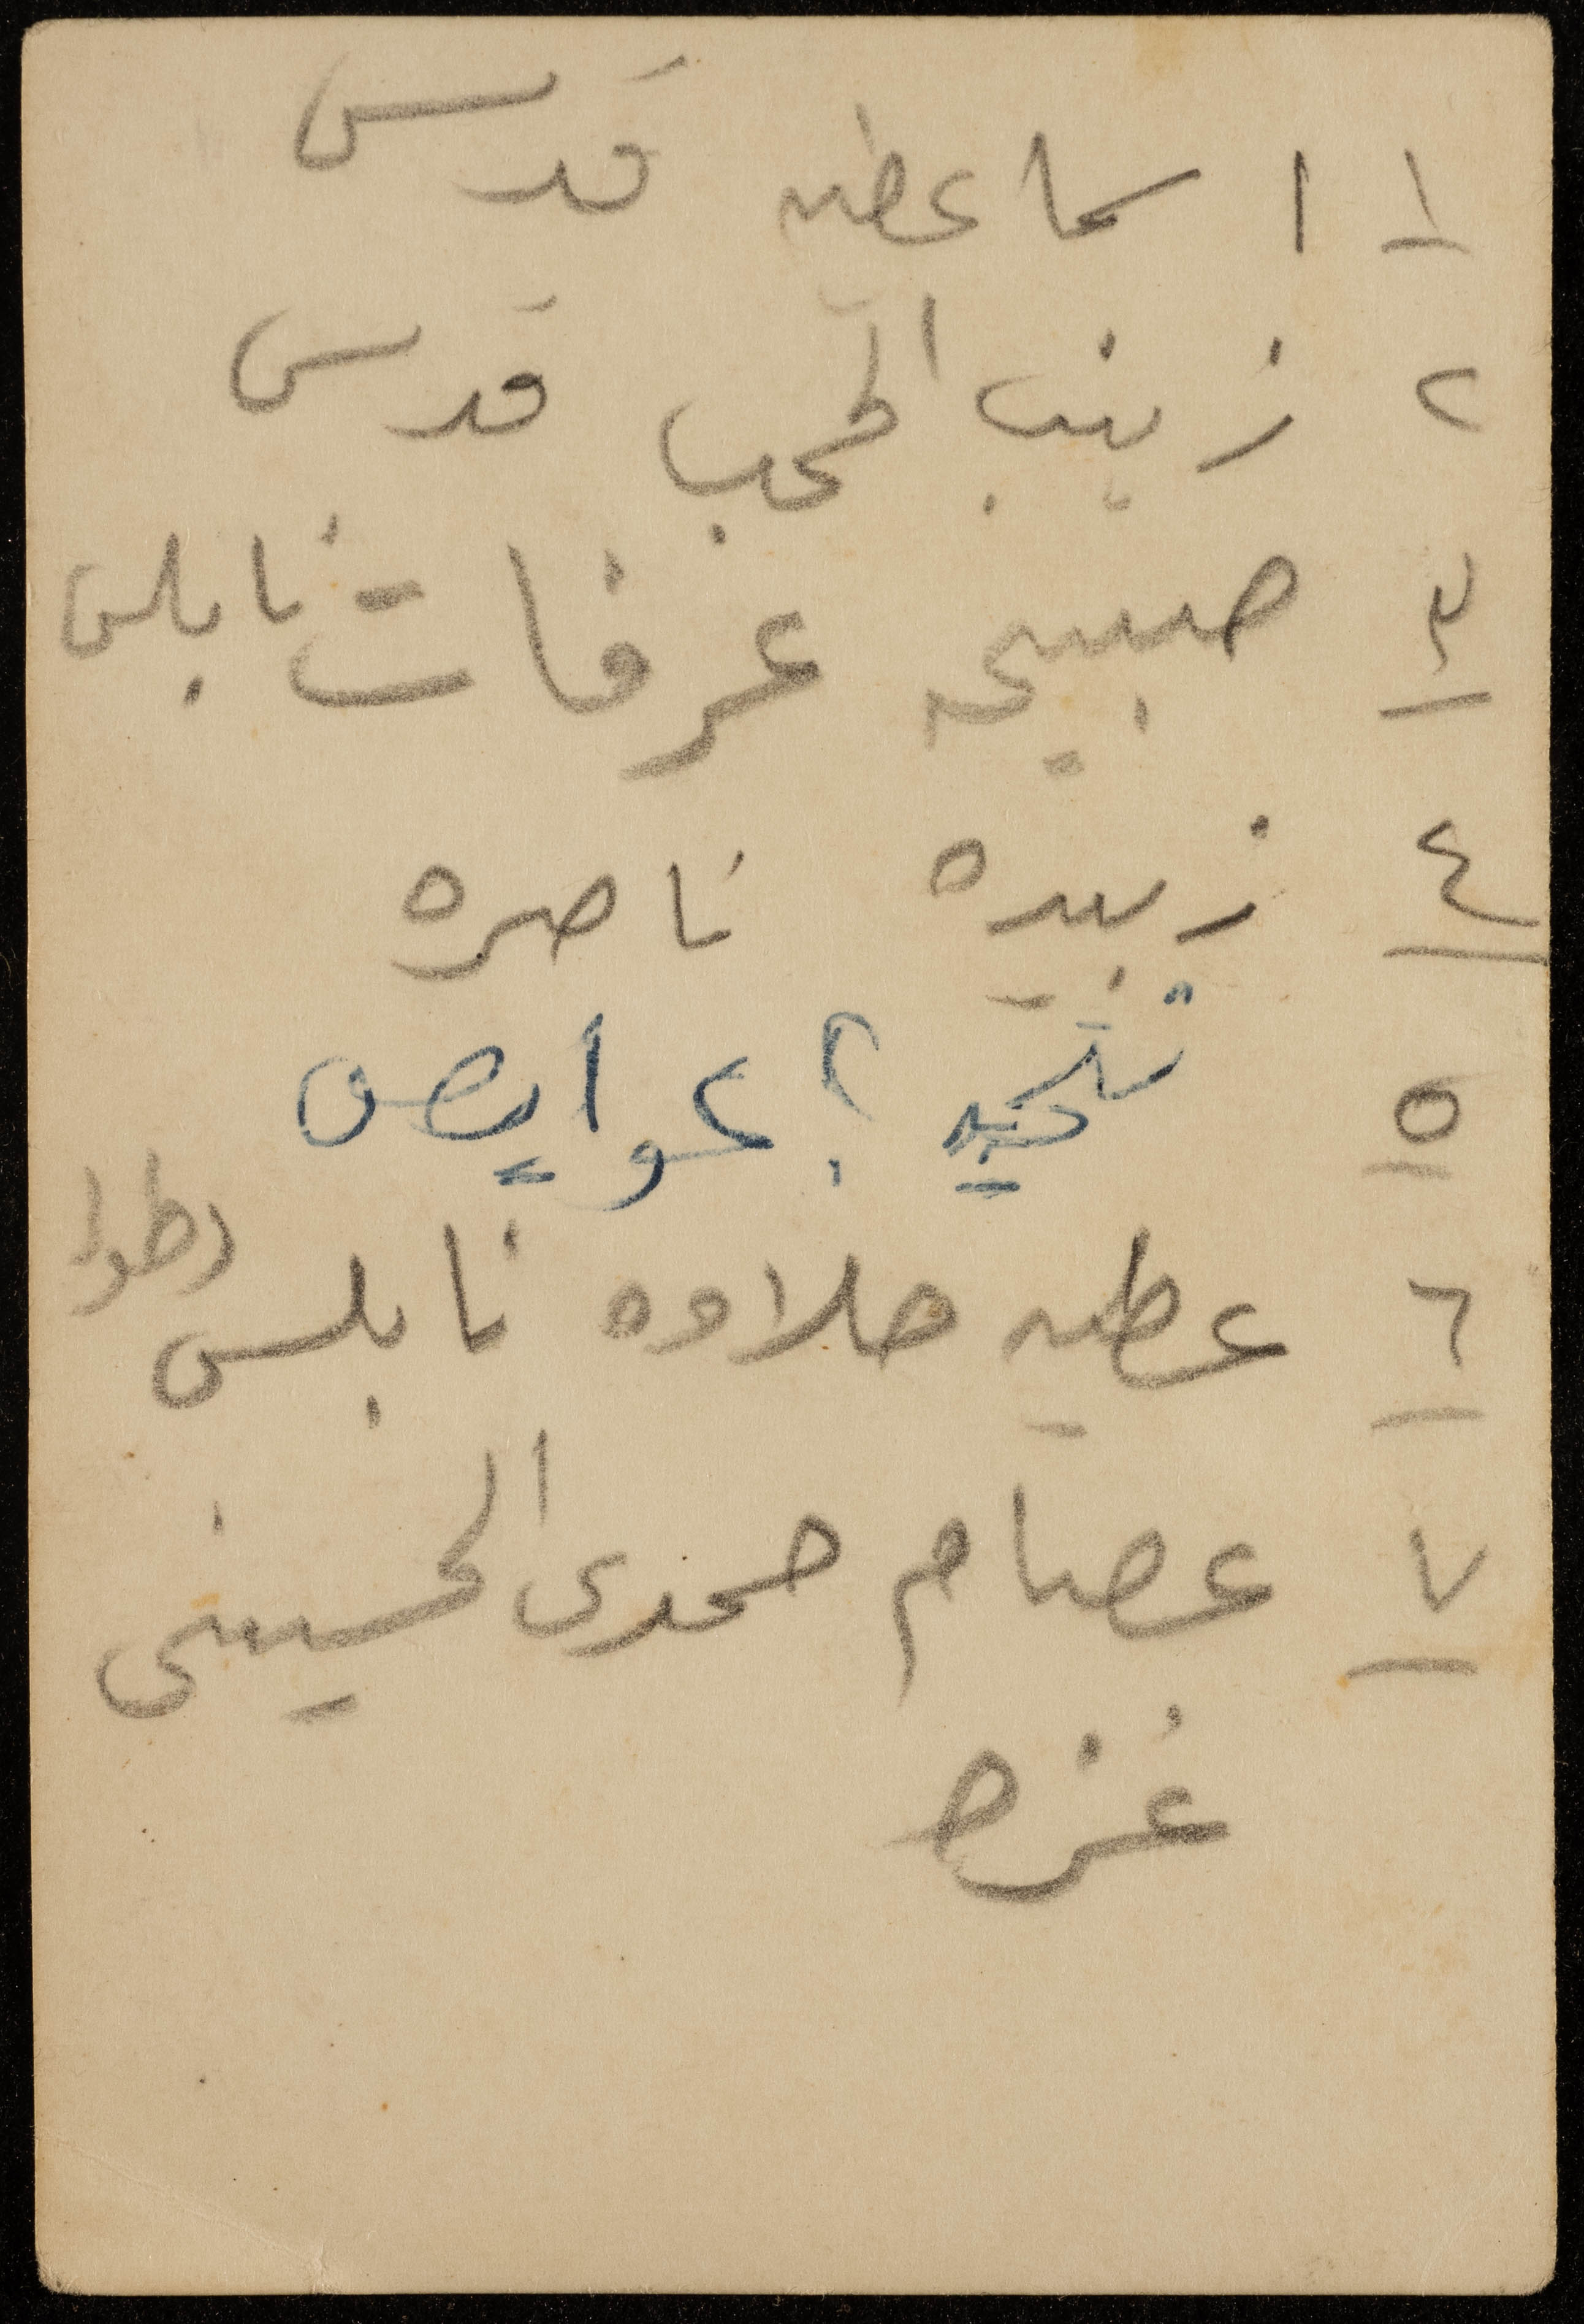 ١ اسما عطيه قدس
٢ زينب المحب قدس
٣ صبيحه عرفات نابلس
٤ زبيده ناصره
٥ ؟ عوايص
٦ عطيه حلاوه نابلس
٧ عصام حمدى الحسينى
غزه